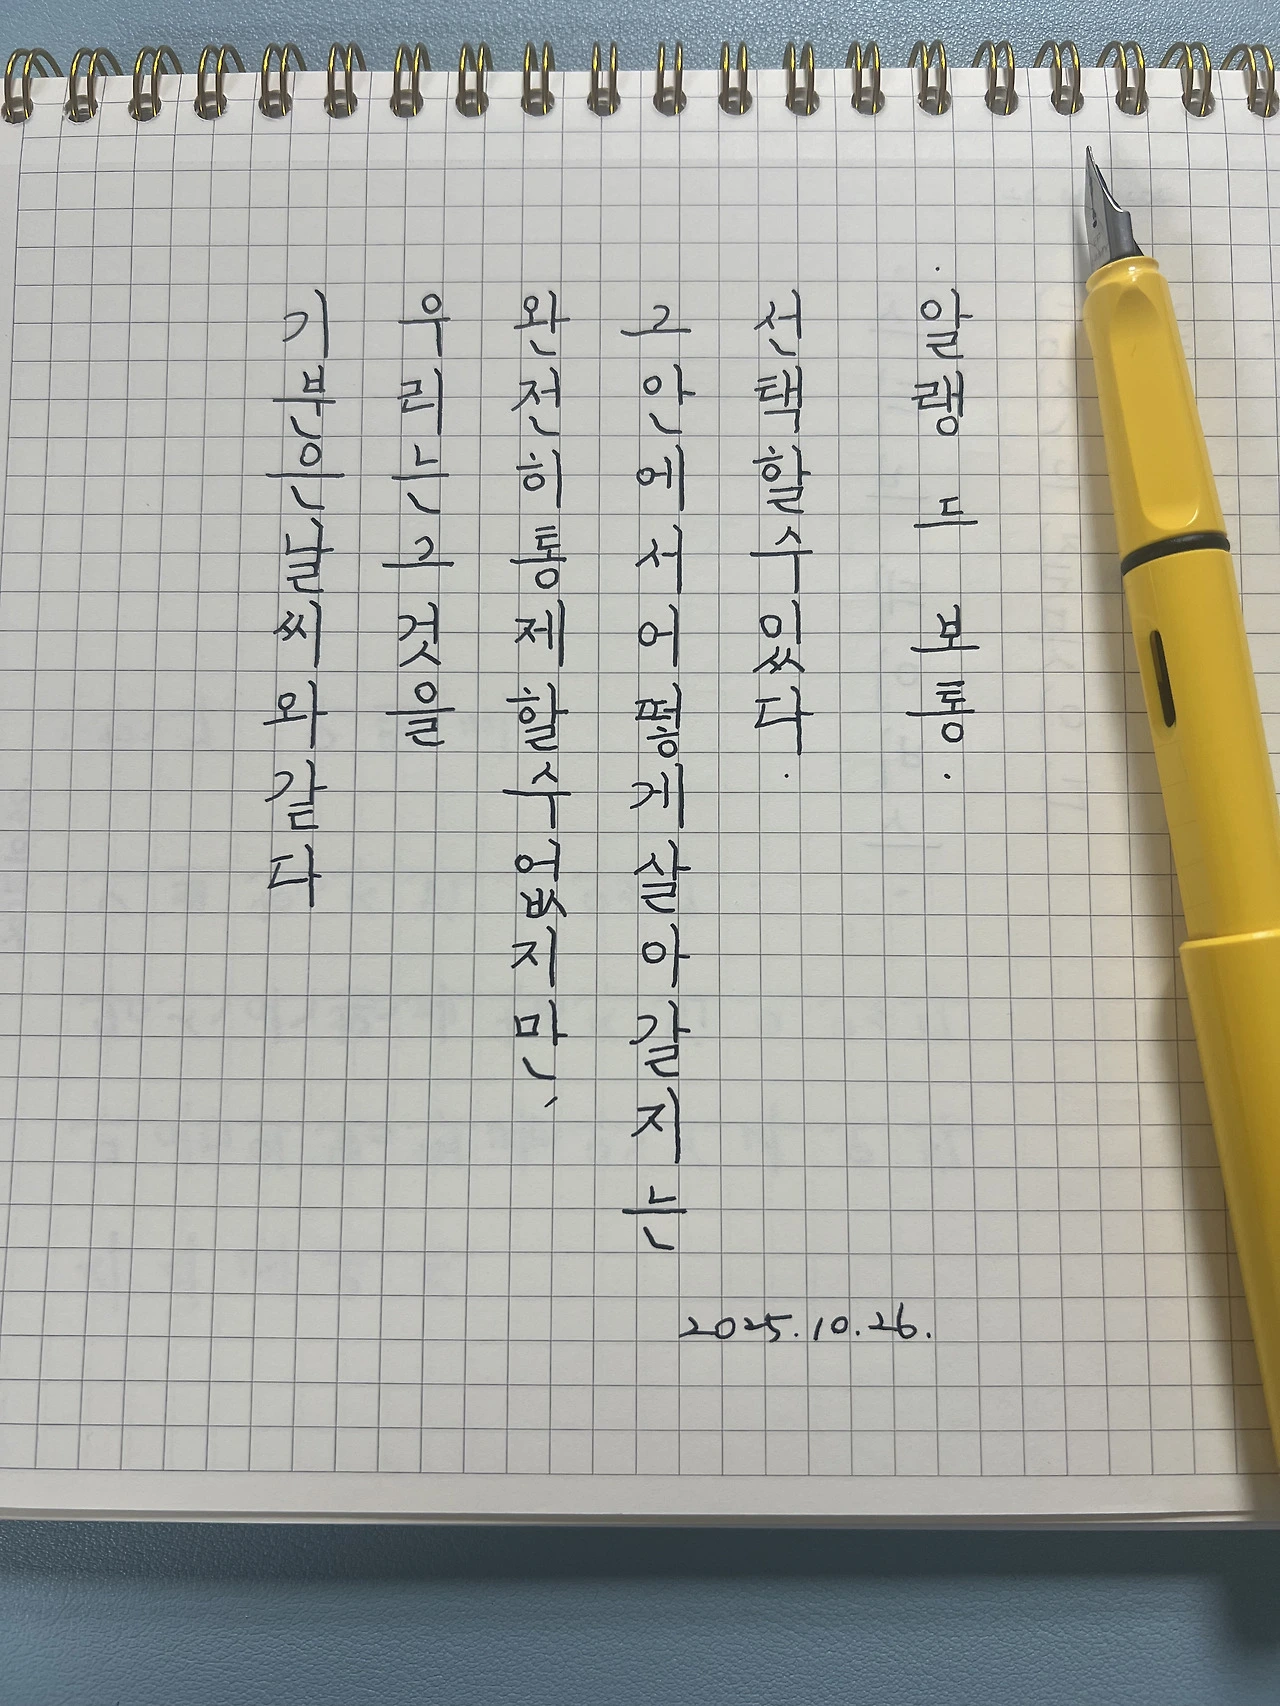 기분은날씨와같다
우리는그것을
완전히통제할수없지만,
그안에서어떻게살아갈지는
선택할수있다.
· 알랭 드 보통 ·
2025.10.26.